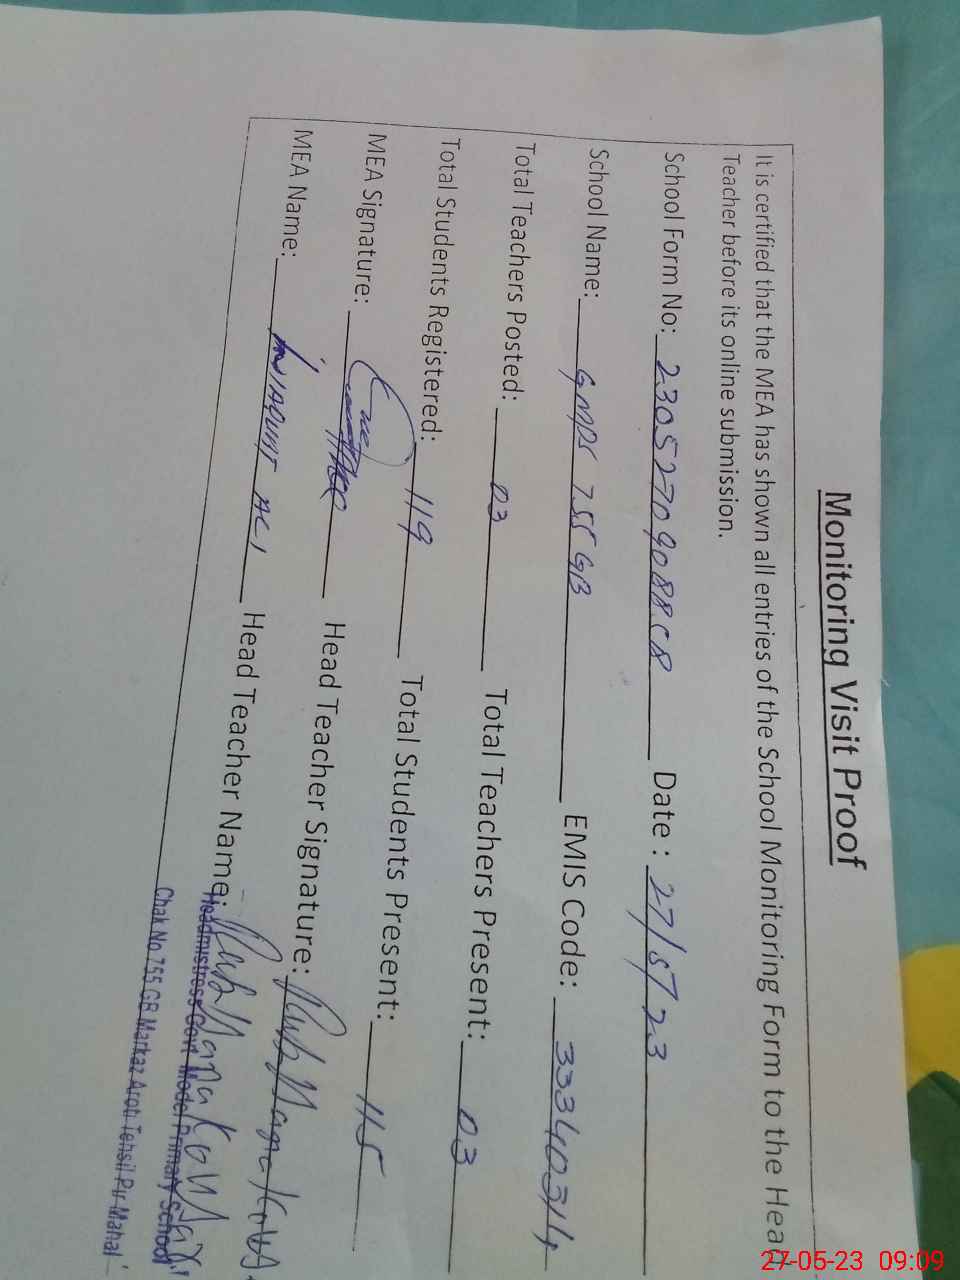 Monitoring Visit Proof
It is certified that the MEA has shown all entries of the School Monitoring Form to the Head
Teacher before its online submission.
School Form No: 23052709088C8 Date : 27/5/23
School Name: GMPS 755 GB EMIS Code: 33340314
Total Teachers Posted: 03 Total Teachers Present: 03
Total Students Registered: 119 Total Students Present: 115
MEA Signature: Head Teacher Signature:
MEA Name: Head Teacher Name:
Headmistress Govt Model Primary School
Chak No 755 GB Markaz Aroti Tehsil Pir Mahal
27-05-23 09:09